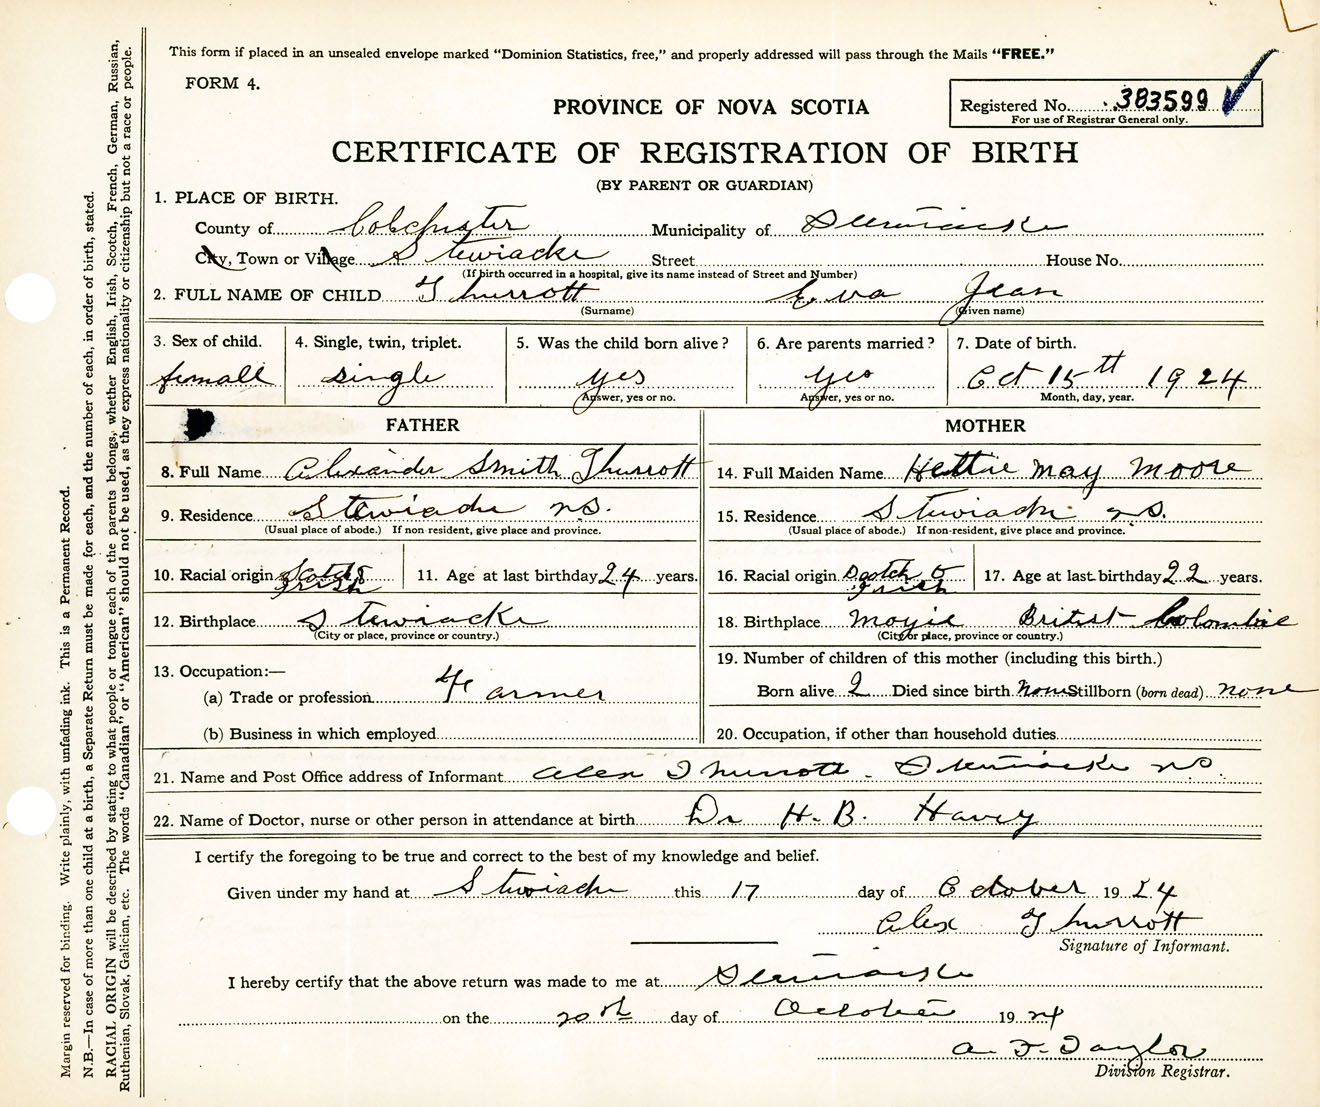 This form if placed in an unsealed envelope marked "Dominion Statistics, free," and properly addressed will pass through the Mails "FREE."
FORM 4.
PROVINCE OF NOVA SCOTIA
Registered No. 383599
For use of Registrar General only.
CERTIFICATE OF REGISTRATION OF BIRTH
(BY PARENT OR GUARDIAN)
1. PLACE OF BIRTH.
County of Colchester Municipality of Stewiacke
City, Town or Village Stewiacke Street House No.
(If birth occurred in a hospital, give its name instead of Street and Number)
2. FULL NAME OF CHILD Thurrott Eva Jean
(Surname) (Given name)
3. Sex of child. 4. Single, twin, triplet. 5. Was the child born alive? 6. Are parents married? 7. Date of birth.
female single yes yes Oct 15th 1924
Answer, yes or no. Answer, yes or no. Month, day, year.
FATHER MOTHER
8. Full Name Alexander Smith Thurrott 14. Full Maiden Name Hettie May Moore
9. Residence Stewiacke N.S. 15. Residence Stewiacke N.S.
(Usual place of abode.) If non-resident, give place and province. (Usual place of abode.) If non-resident, give place and province.
10. Racial origin Scotch & Irish 11. Age at last birthday 24 years. 16. Racial origin Scotch & Irish 17. Age at last birthday 22 years.
12. Birthplace Stewiacke 18. Birthplace Moyie British Colombie
(City or place, province or country.) (City or place, province or country.)
13. Occupation:— 19. Number of children of this mother (including this birth.)
(a) Trade or profession Farmer Born alive 2 Died since birth none Stillborn (born dead) none
(b) Business in which employed 20. Occupation, if other than household duties
21. Name and Post Office address of Informant Alex Thurrott - Stewiacke NS.
22. Name of Doctor, nurse or other person in attendance at birth Dr H. B. Havey
I certify the foregoing to be true and correct to the best of my knowledge and belief.
Given under my hand at Stewiacke this 17 day of October 1924
Alex Thurrott
Signature of Informant.
I hereby certify that the above return was made to me at Stewiacke
on the 20th day of October 1924
A. F. Taylor
Division Registrar.
Margin reserved for binding. Write plainly, with unfading ink. This is a Permanent Record.
N.B.—In case of more than one child at a birth, a Separate Return must be made for each, and the number of each, in order of birth, stated.
RACIAL ORIGIN will be described by stating to what people or tongue each of the parents belongs, whether English, Irish, Scotch, French, German, Russian,
Ruthenian, Slovak, Galician, etc. The words "Canadian" or "American" should not be used, as they express nationality or citizenship but not a race or people.